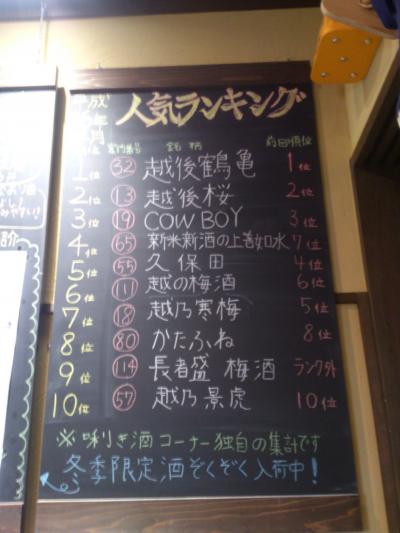 人気ランキング
平成
年
月
銘柄 前回順位
1位 32 越後鶴亀 1位
2位 13 越後桜 2位
3位 19 COWBOY 3位
4位 65 新米新酒の上善如水 7位
5位 55 久保田 4位
6位 111 越の梅酒 6位
7位 18 越乃寒梅 5位
8位 80 かたふね 8位
9位 114 長者盛 梅酒 ランク外
10位 57 越乃景虎 10位
※唎き酒コーナー独自の集計です
冬季限定酒ぞくぞく入荷中!